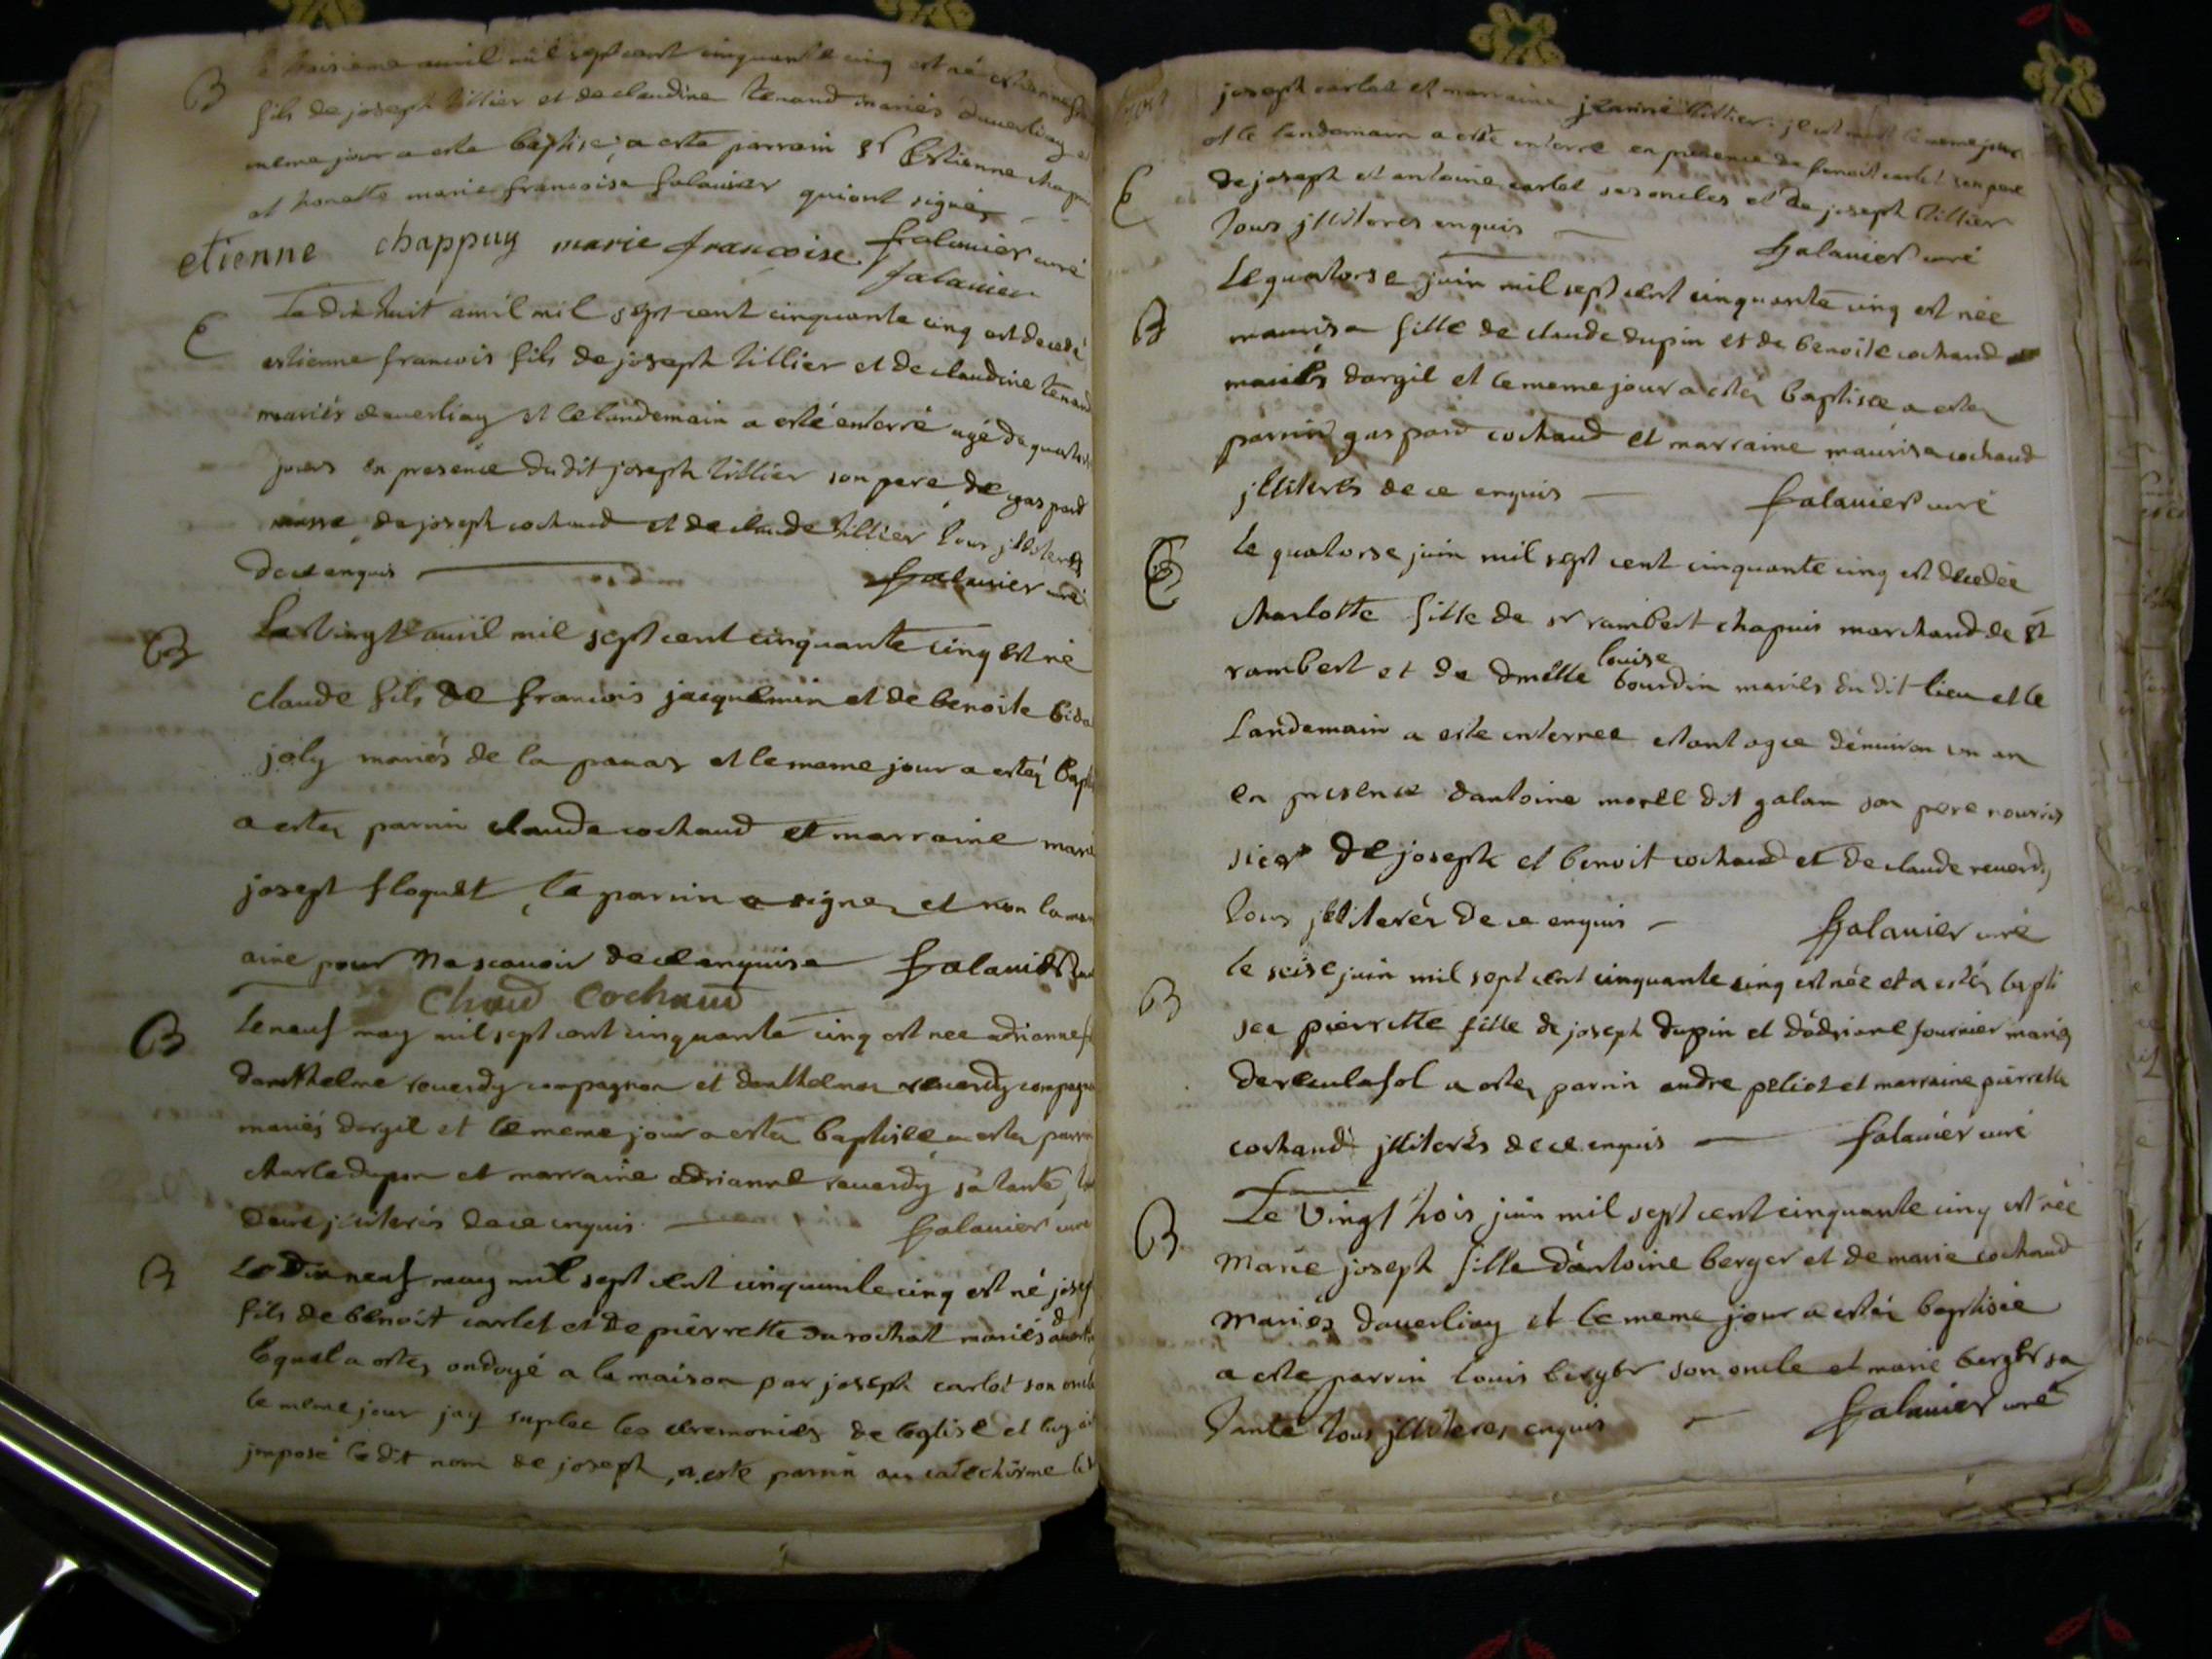 B
troisieme auril mil sept cent cinquante cinq est né
fils de joseph tillier et de claudine tenand mariés dauerliay
meme jour a este baptise, a este parrain sr Estienne
et honette marie francoise falauier qui ont signés
etienne chappuy marie francoise falauier curé
falauier
E
Le dix huit auril mil sept cent cinquante cinq est decedé
estienne francois fils de joseph tillier et de claudine tenand
mariés dauerliay et le landemain a esté enterré agé de
jours en presence du dit joseph tillier son pere, de gaspard
de joseph cochaud et de claude tillier tous jlliterés
de ce enquis falauier curé
B
Le vingt auril mil sept cent cinquante cinq est né
claude fils de francois jacquemin et de benoite
joly mariés de la et le meme jour a estez
a estez parrin claude cochaud et marraine
joseph floquet, le parrin a signez et non la
aine pour ne scauoir de ce enquise falauier
Claud Cochaud
B
Le neuf may mil sept cent cinquante cinq est nee adrianne
danthelme reuerdy compagnon et danthelmaz reuerdy
mariés dorgil et le meme jour a estez baptisee, a estez
charle dupin et marraine adrianne reuerdy sa tante,
deux jliterés de ce enquis falauier curé
B
Le dix neuf may mil sept cent cinquante cinq est né
fils de benoit carlet et de pierrette durochat mariés
lequel a estez ondoyé a la maison par joseph carlet son
le meme jour jay suplee les ceremonies de leglise et luy
jmposé le dit nom de joseph, a este parrin au catechisme
joseph carlet et marraine jeanne tillier. jl est mort le meme jour
E
et le landemain a esté enterré en presence de benoit carlet son pere
de joseph et antoine carlet ses oncles et de joseph tillier
tous jlliteres enquis falauier curé
B
Le quatorse juin mil sept cent cinquante cinq est née
maurisa fille de claude dupin et de benoite cochaud
mariés dorgil et le meme jour a estéz baptisee a estez
parrin gaspard cochaud et marraine maurisa cochaud
jlliterés de ce enquis falauier curé
E
le quatorse juin mil sept cent cinquante cinq est decedée
charlotte fille de sr rambert chapuis marchand de st
louise
rambert et de dmelle bourdin mariés du dit lieu et le
landemain a este enterree etant agee denuiron un an
en presence dantoine morel dit galan son pere nouris
sier de joseph et benoit cochaud et de claude reuerdy
tous jlliterés de ce enquis falauier curé
B
le seise juin mil sept cent cinquante cinq est née et a estéz bapti
see pierrette fille de joseph dupin et dadriane fournier mariez
a estez parrin andre peliot et marraine pierrette
cochaud jlliterés de ce enquis falauier curé
B
Le vingt trois juin mil sept cent cinquante cinq est née
marie joseph fille dantoine berger et de marie cochaud
mariés dauerliay et le meme jour a estéz baptisée
a este parrin louis berger son oncle et marie berger sa
tante tous jlliteres enquis falauier curé